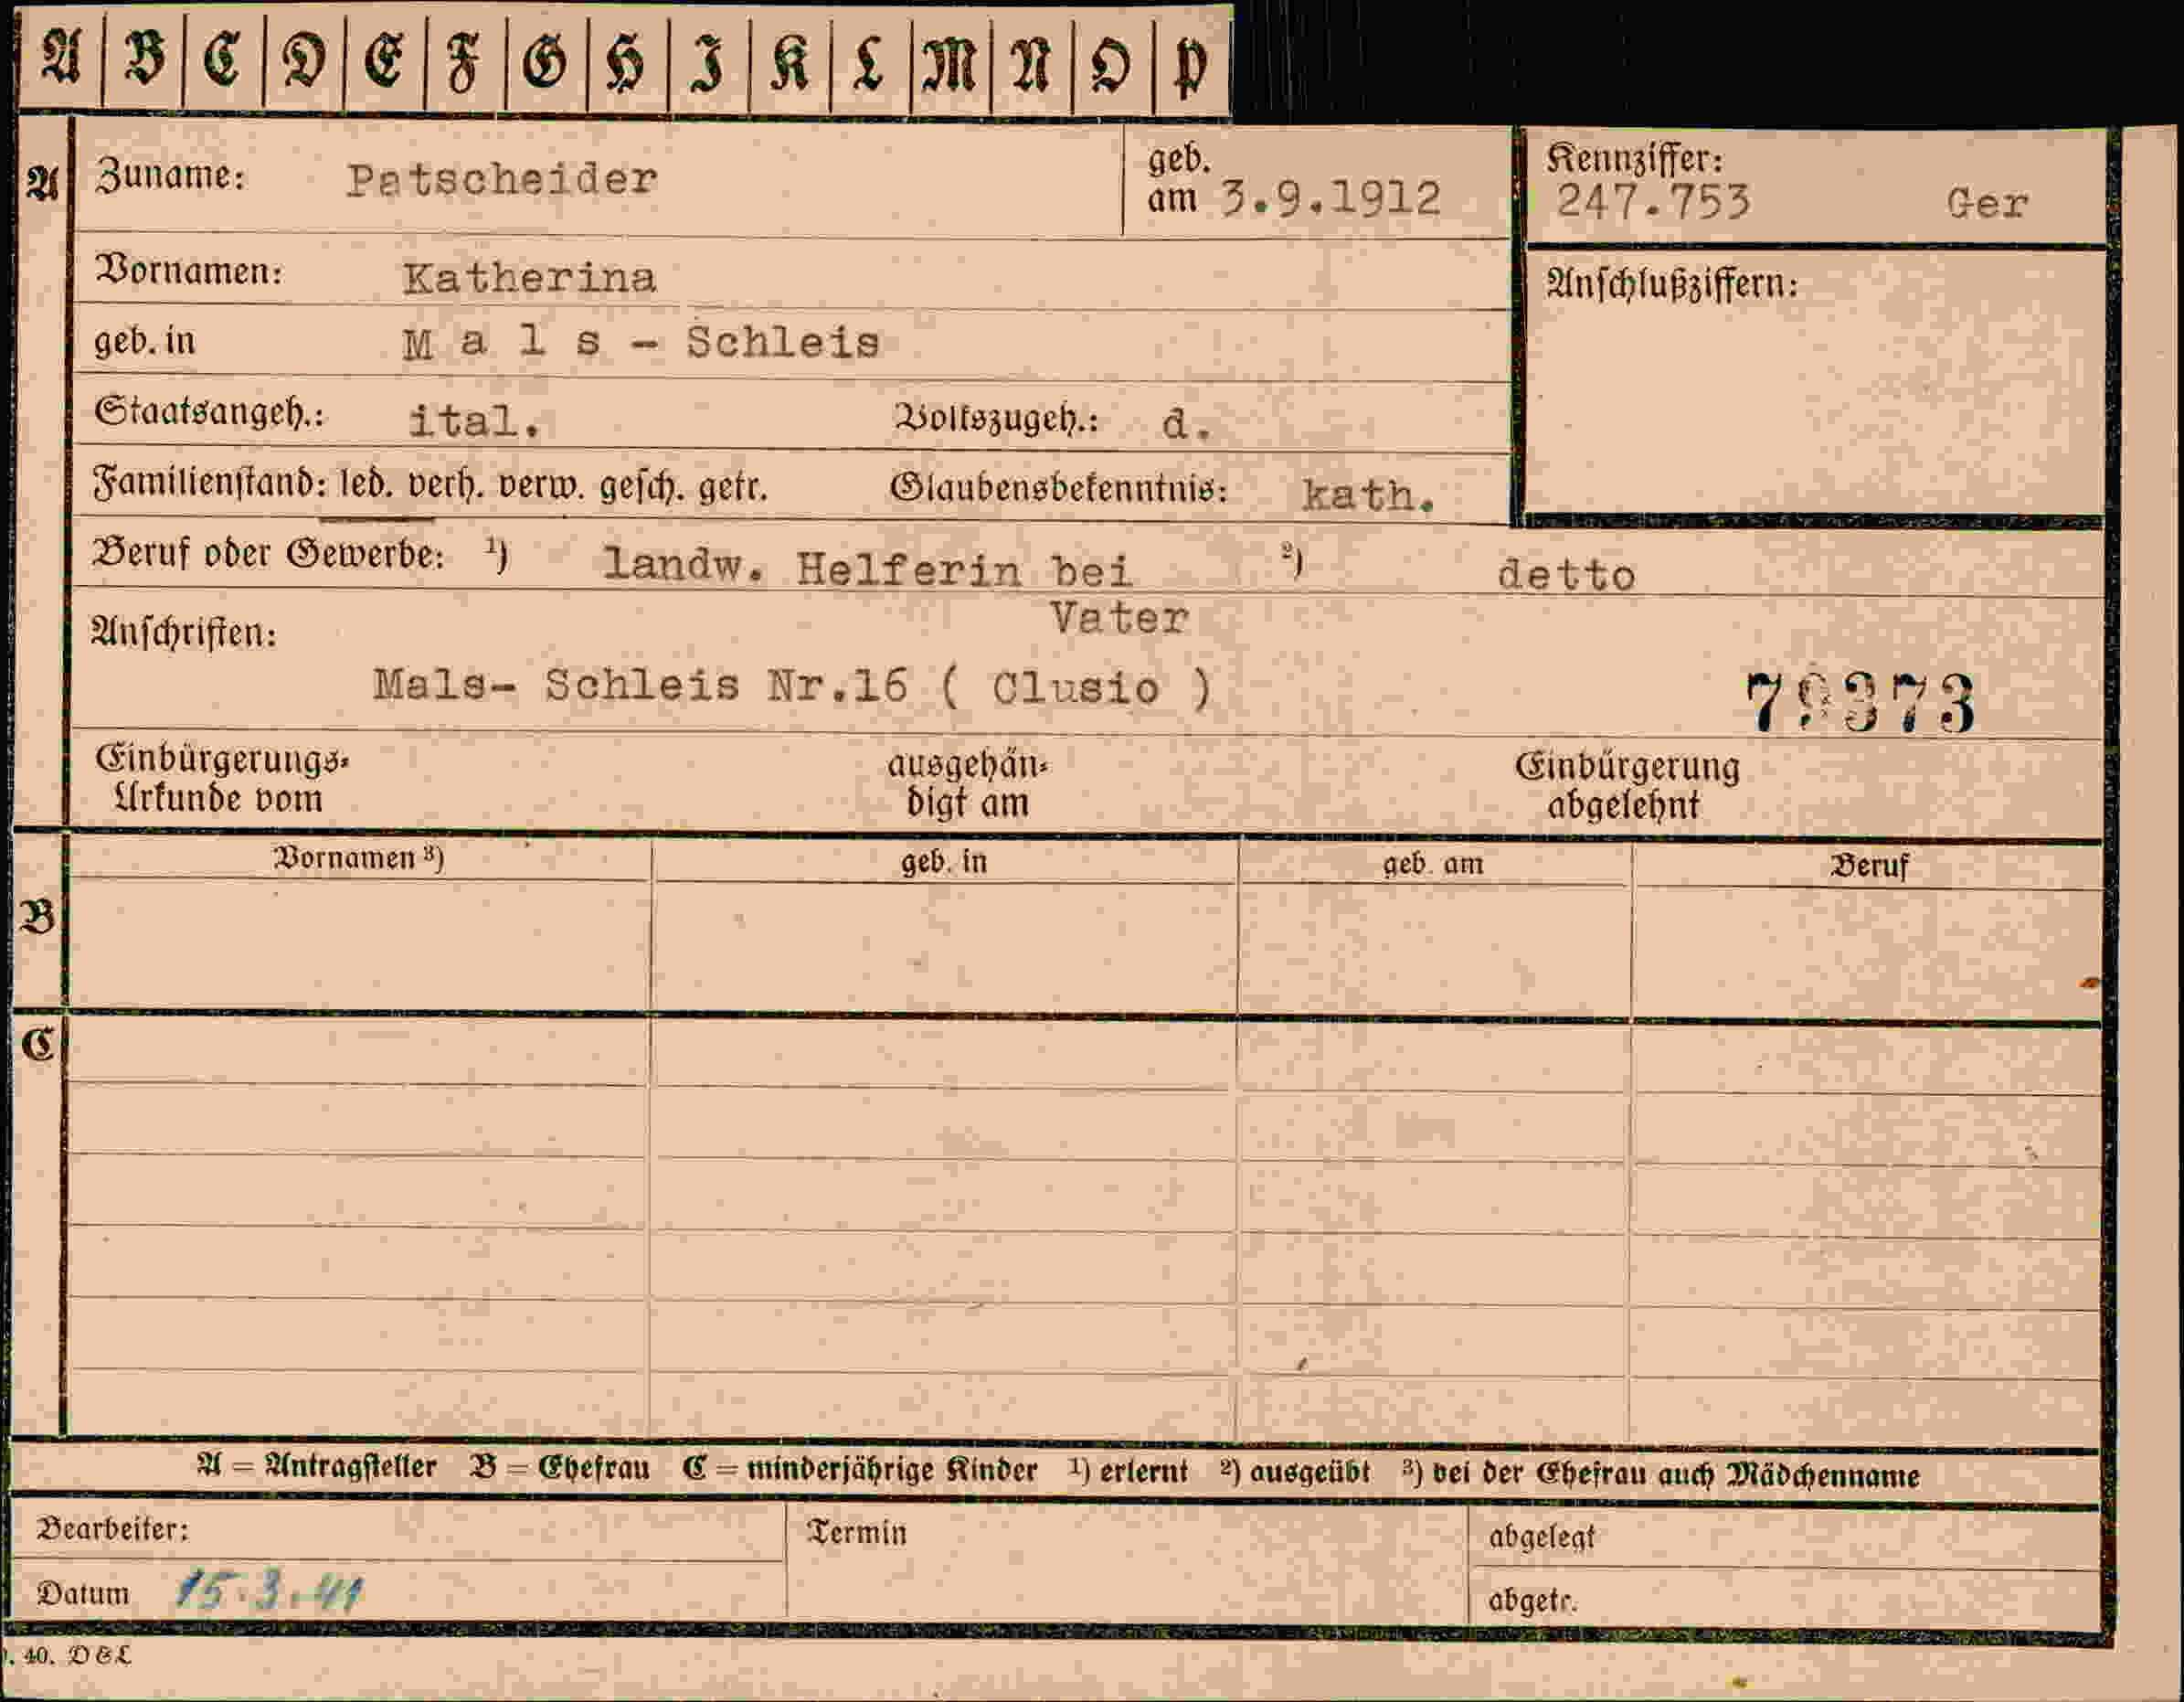 A B C D E F G H I K L M N O P
A Zuname: Patscheider geb. am 3.9.1912 Kennziffer: 247.753 Ger
Vornamen: Katherina Anschlußziffern:
geb. in M a l s - Schleis
Staatsangeh.: ital. Volkszugeh.: d.
Familienstand: led. verh. verw. gesch. getr. Glaubensbekenntnis: kath.
Beruf oder Gewerbe: ¹) landw. Helferin bei ²) detto
Vater
Anschriften:
Mals- Schleis Nr.16 ( Clusio ) 79373
Einbürgerungs= ausgehän= Einbürgerung
Urkunde vom digt am abgelehnt
Vornamen ³) geb. in geb. am Beruf
B
C
A = Antragsteller B = Ehefrau C = minderjährige Kinder ¹) erlernt ²) ausgeübt ³) bei der Ehefrau auch Mädchenname
Bearbeiter: Termin abgelegt
Datum 15.3.41 abgetr.
. 40. D & L